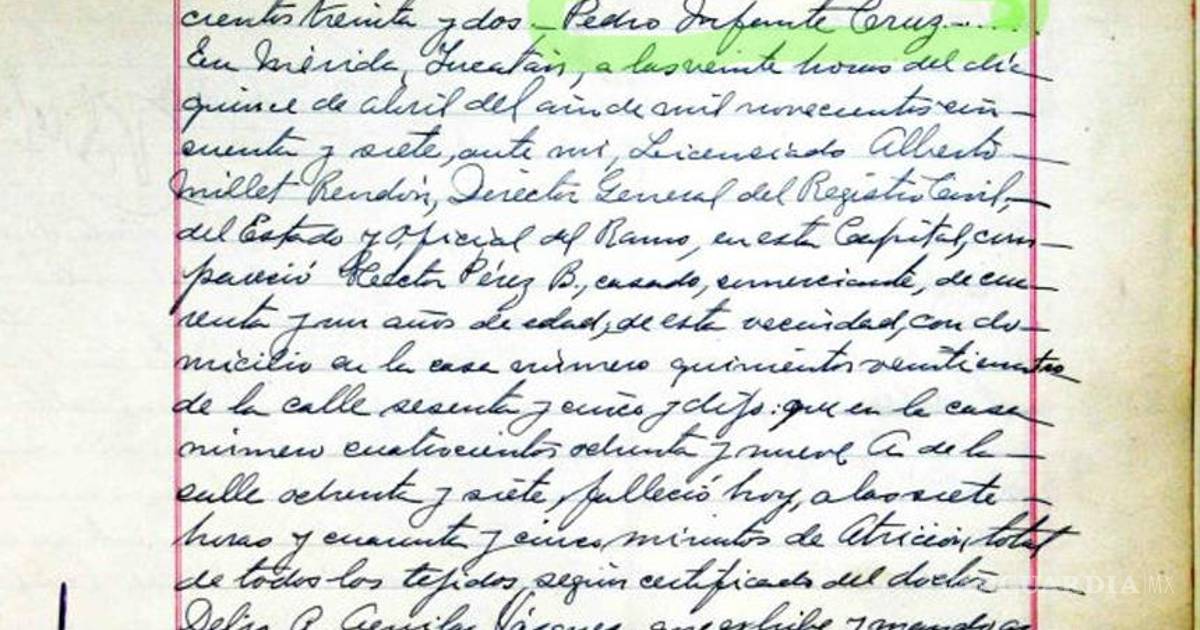 cientos treinta y dos — Pedro Infante Cruz — ....
En Mérida, Yucatán, a las veinte horas del día
quince de abril del año de mil novecientos cin-
cuenta y siete, ante mi, Licenciado Alberto
Millet Rendón, Director General del Registro Civil,
del Estado y Oficial del Ramo, en esta Capital, com-
pareció Hector Pérez B., casado, comerciante, de cua
renta y un años de edad, de esta vecindad, con do-
micilio en la casa número quinientos veinticuatro
de la calle sesenta y cinco y dijo: que en la casa
número cuatrocientos ochenta y nueve A de la
calle ochenta y siete, falleció hoy, a las siete
horas y cuarenta y cinco minutos de Atrición, total
de todos los tejidos, según certificado del doctor
P. Aguilar Vásquez, que exhibe y mando
GUARDIA MX